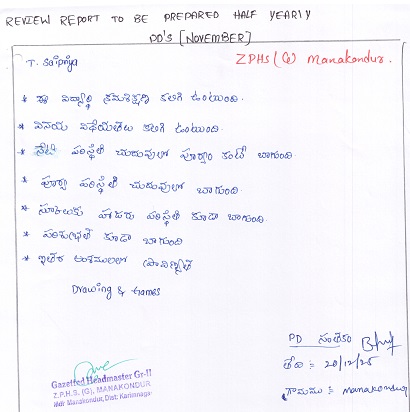 REVIEW REPORT TO BE PREPARED HALF YEARLY
DD'S [NOVEMBER]
T. Saipriya
ZPHS (G) Manakondur.
* ఈ విద్యార్థి క్రమశిక్షణ కలిగి ఉంటుంది.
* వినయ విధేయతలు కలిగి ఉంటుంది.
* నేటి పరిస్థితి చదువులో పూర్వం కంటే బాగుంది
* పూర్వ పరిస్థితి చదువులో బాగుంది
* స్కూలుకు హాజరు పరిస్థితి కూడా బాగుంది.
* పరిశుభ్రత కూడా బాగుంది
* ఇతర అంశములలో ప్రావిణ్యత
Drawing & Games
PD సంతకం
తేది :- 20/12/25
గ్రామము :- manakondur
Gazetted Headmaster Gr-II
Z.P.H.S. (G), MANAKONDUR
Mdl: Manakondur, Dist: Karimnagar